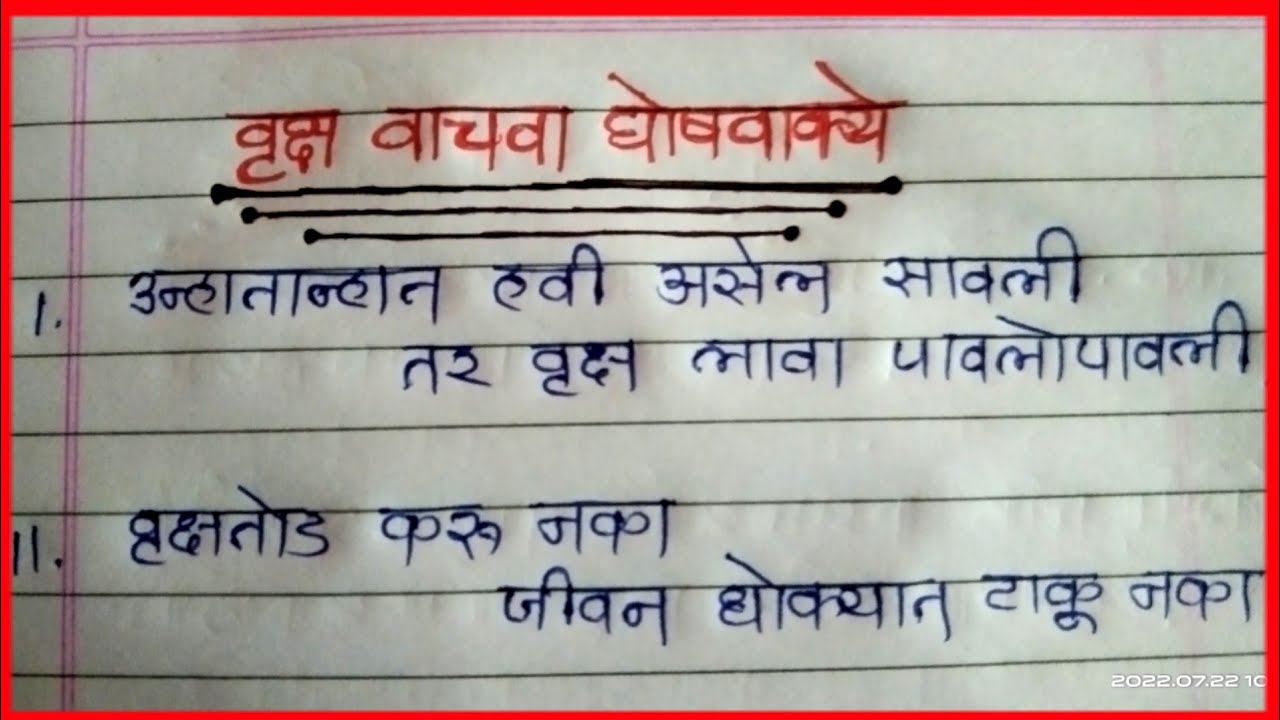 वृक्ष वाचवा घोषवाक्ये
I. उन्हातान्हात हवी असेल सावली
तर वृक्ष लावा पावलोपावली
II. वृक्षतोड करू नका
जीवन धोक्यात टाकू नका
2022.07.22 10